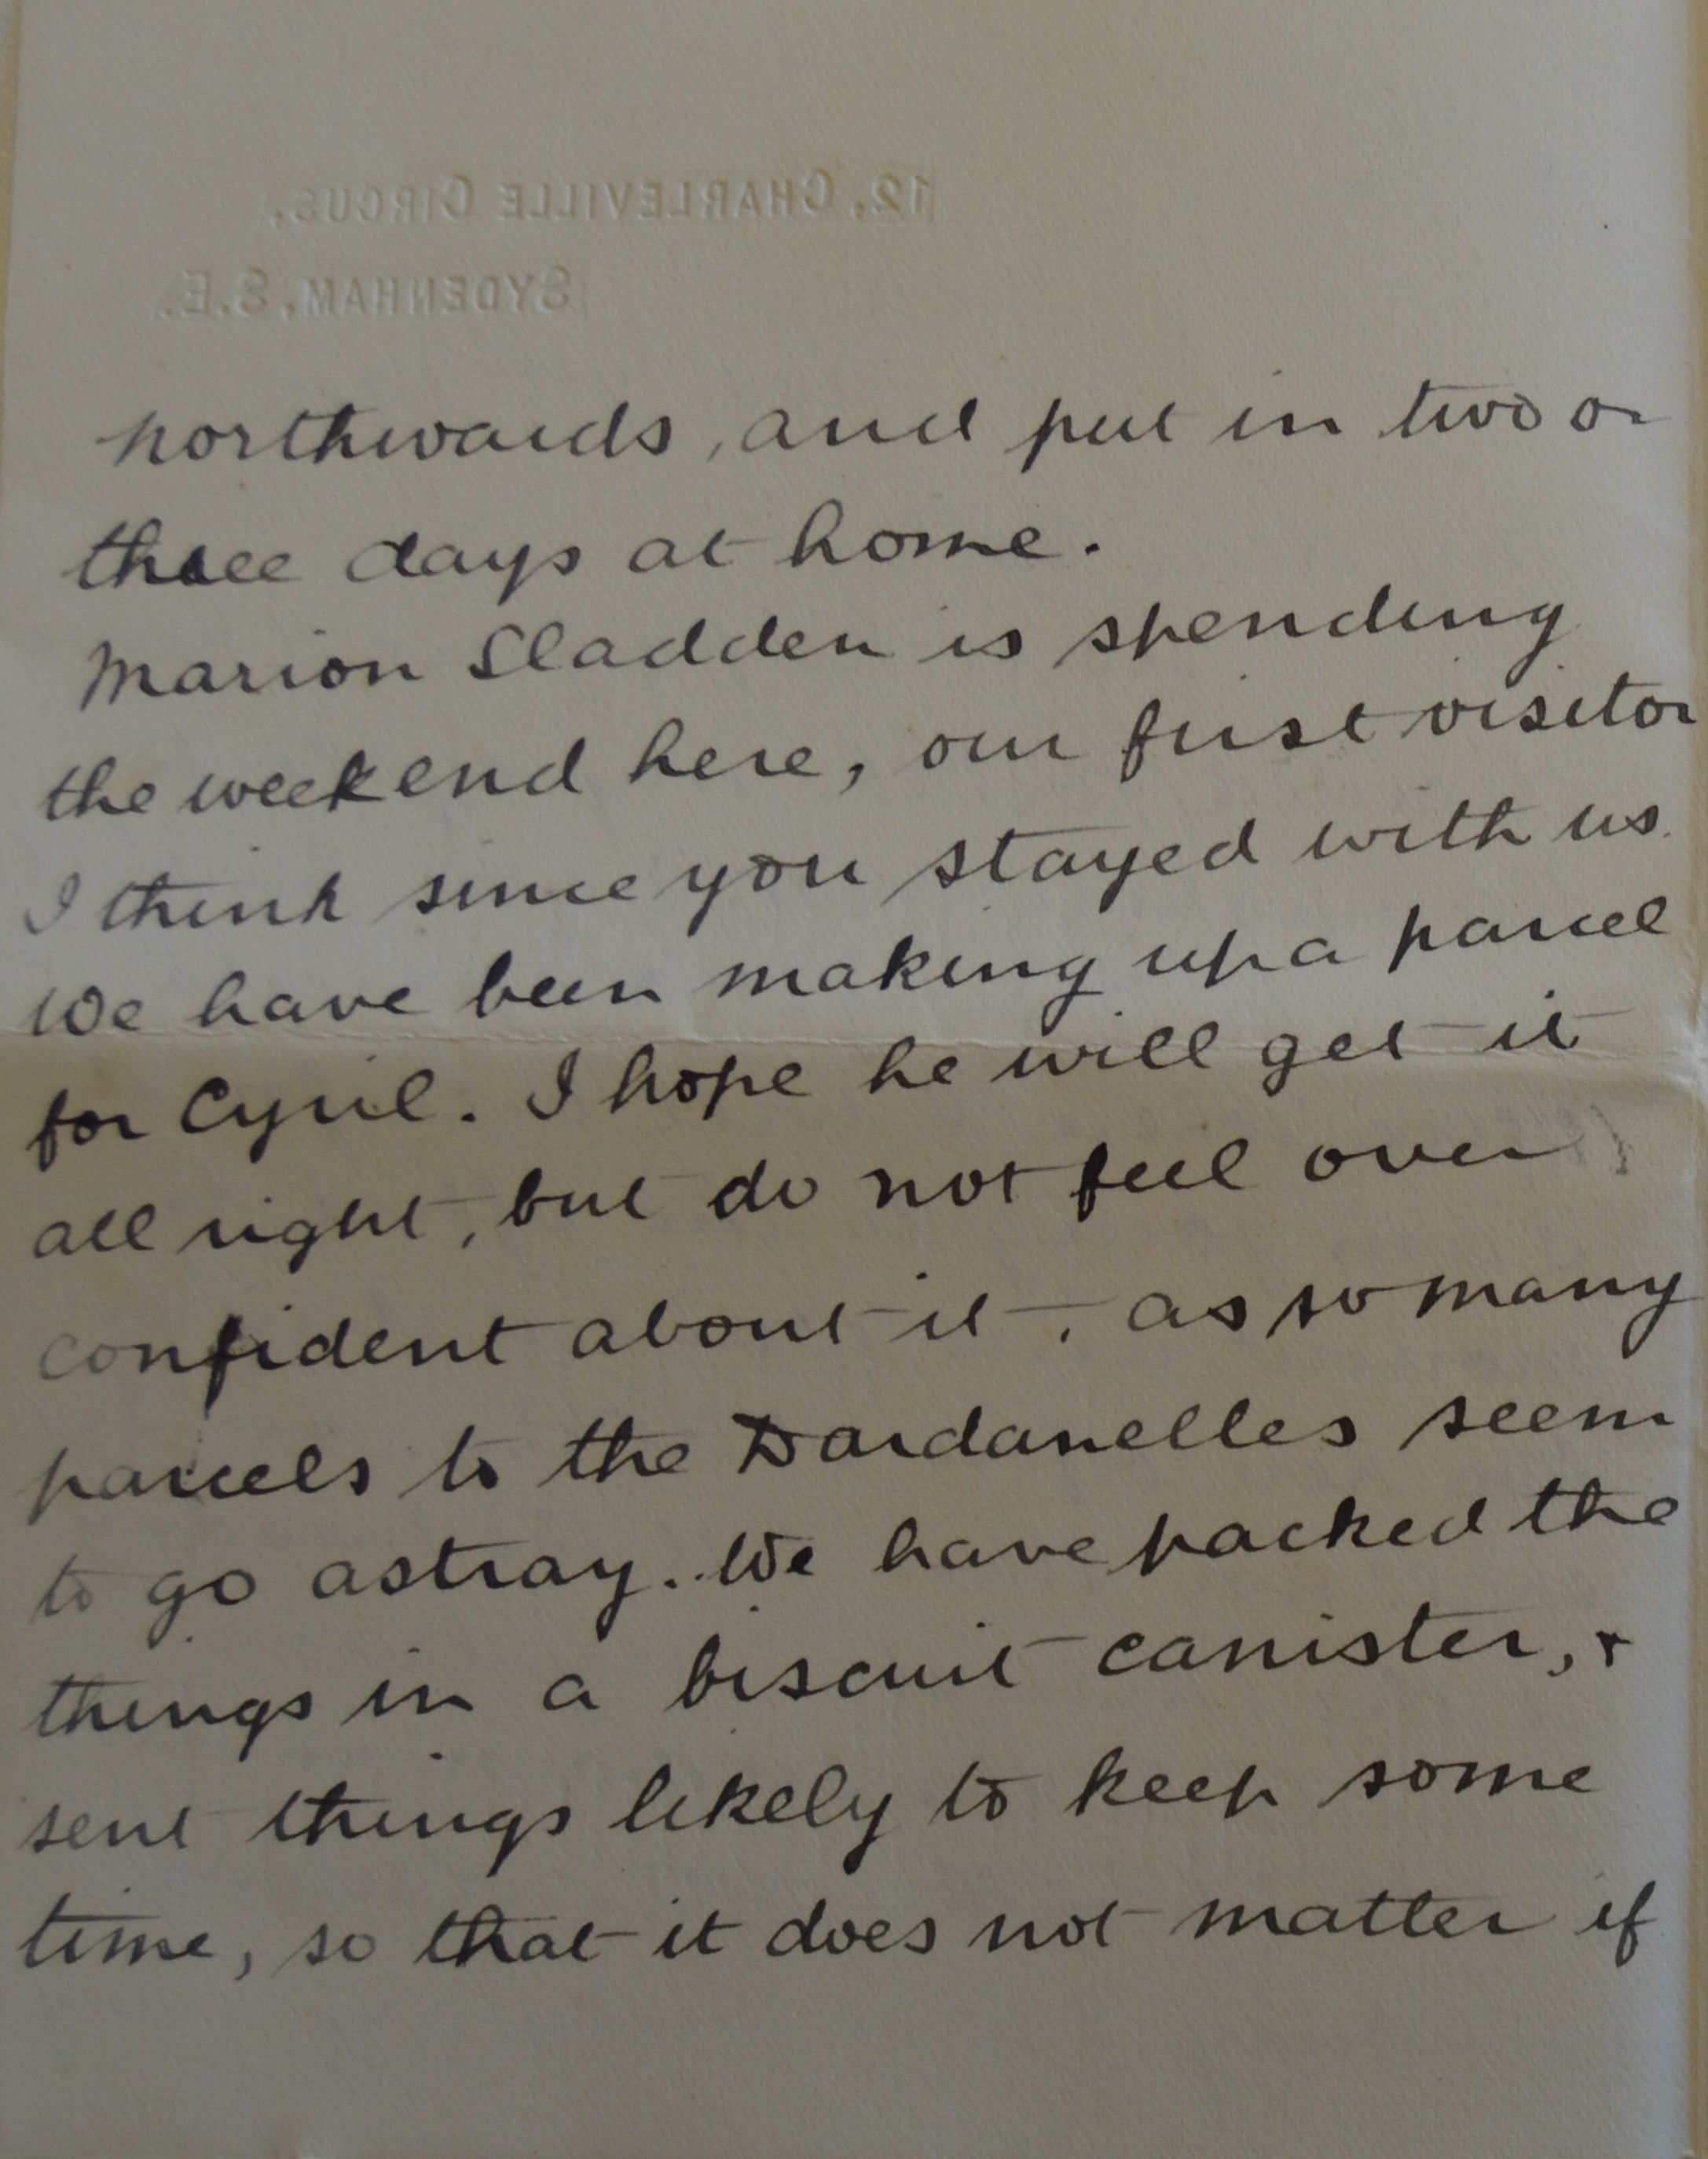 12, CHARLEVILLE CIRCUS,
SYDENHAM, S.E.
northwards, and put in two or
three days at home.
Marion Sladden is spending
the weekend here, our first visitor
I think since you stayed with us.
We have been making up a parcel
for Cyril. I hope he will get it
all right, but do not feel over
confident about it, as so many
parcels to the Dardanelles seem
to go astray. We have packed the
things in a biscuit canister, &
sent things likely to keep some
time, so that it does not matter if